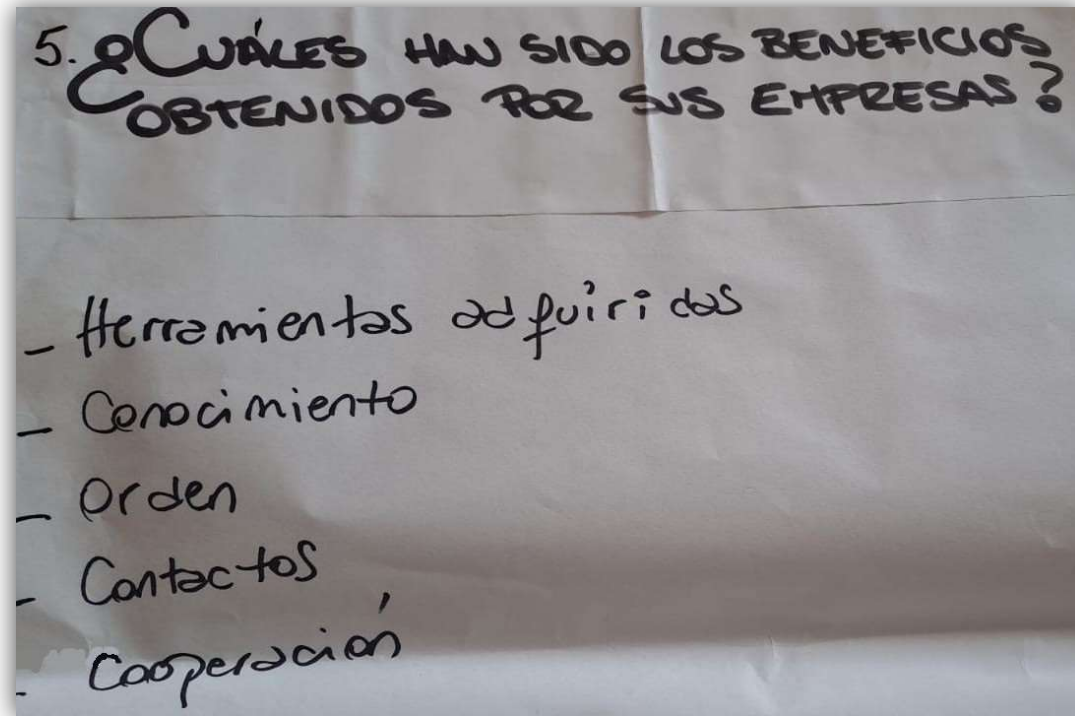 5. ¿CUÁLES HAN SIDO LOS BENEFICIOS
OBTENIDOS POR SUS EMPRESAS?
- Herramientas adquiridas
- Conocimiento
- Orden
- Contactos
- Cooperación